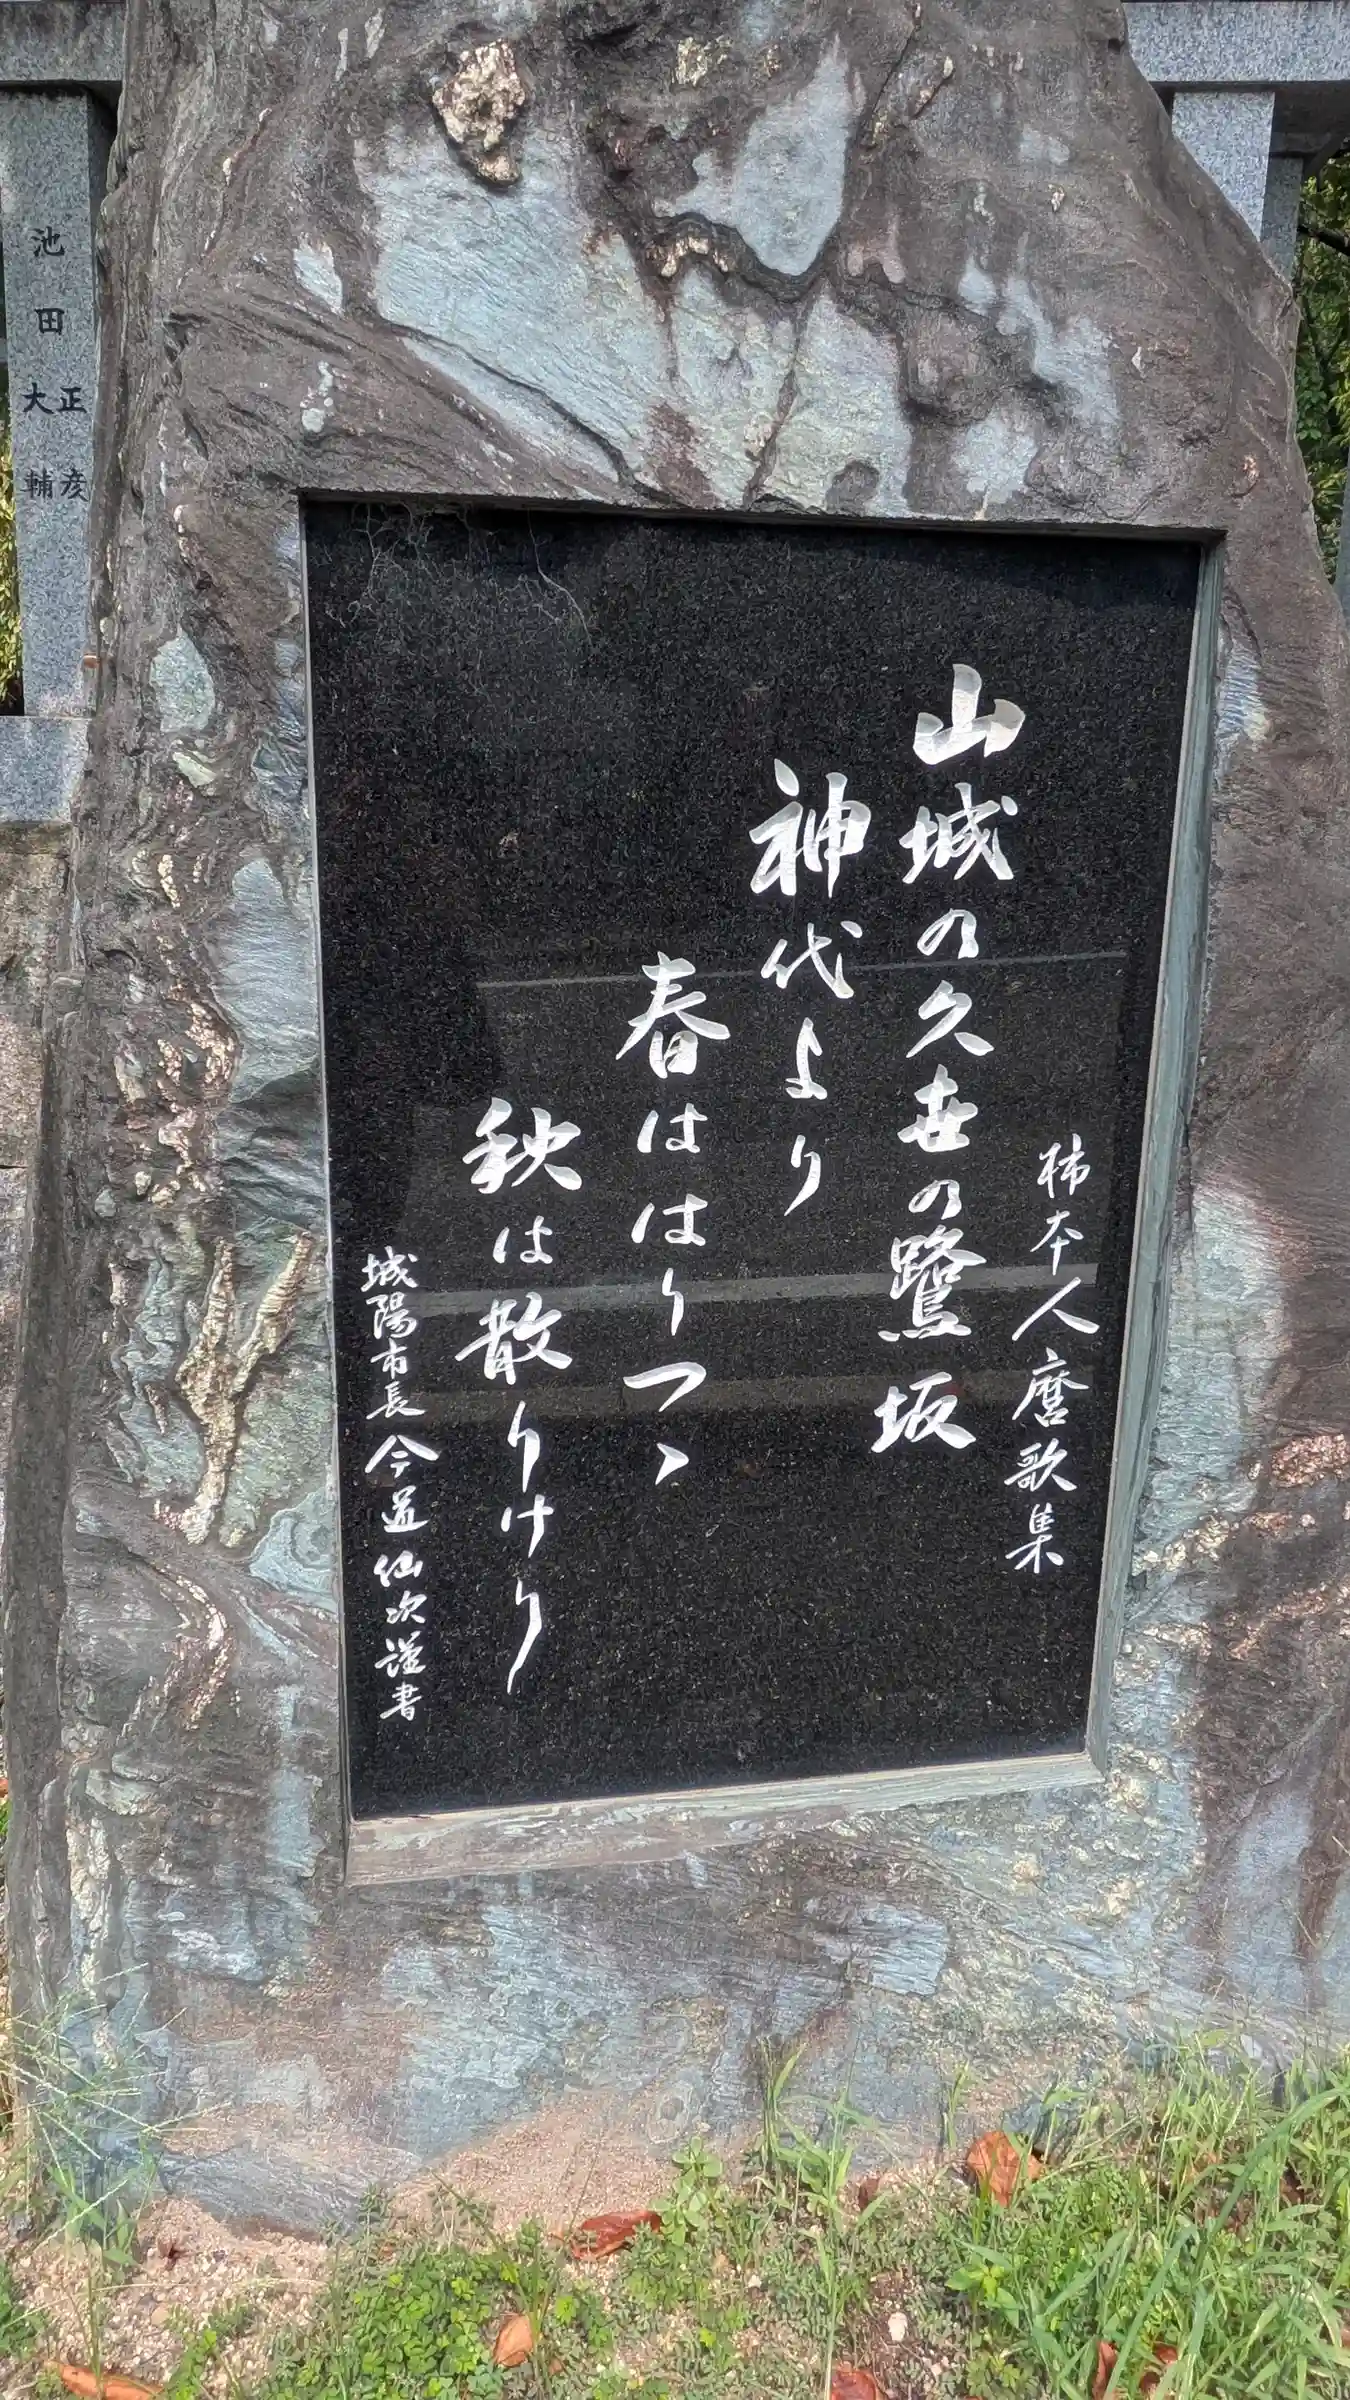 柿本人麿歌集
山城の久世の鷺坂
神代より
春ははりつゝ
秋は散りけり
城陽市長今道仙次謹書
池田
正彦
大輔